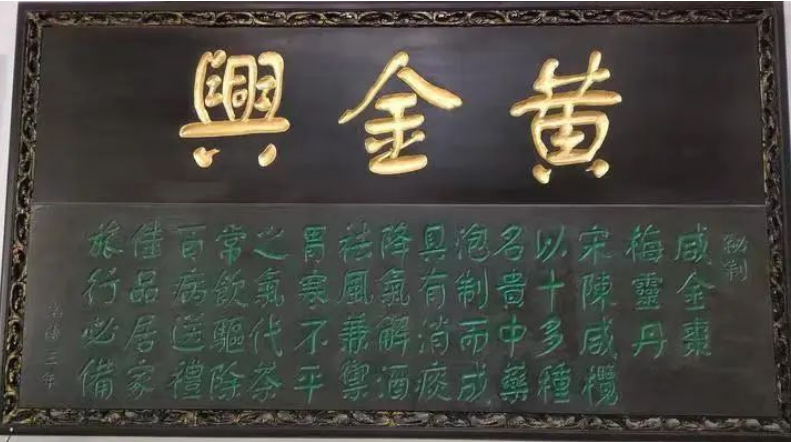 黄金興
秘制
咸金棗
梅靈丹
宋陳咸欖
以十多種
名貴中藥
泡制而成
具有消痰
降氣解酒
祛風兼禦
胃寒不平
之氣代茶
常飲驅除
百病送禮
佳品居家
旅行必備
光緒三年